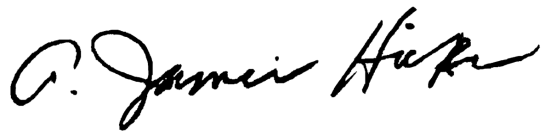 A. James Hicks